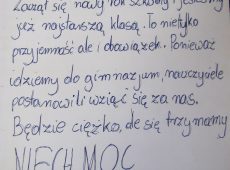 Zaczął się nowy rok szkolny i jesteśmy
już najstarszą klasą. To nietylko
przyjemność ale i obowiązek. Ponieważ
idziemy do gimnazjum, nauczyciele
postanowili wziąć się za nas.
Będzie ciężko, ale się trzymamy
NIECH MOC